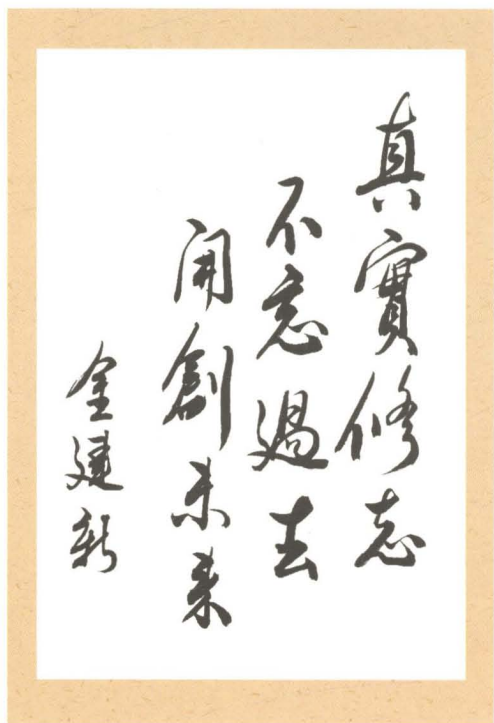 真實修志
不忘過去
開創未来
金建新